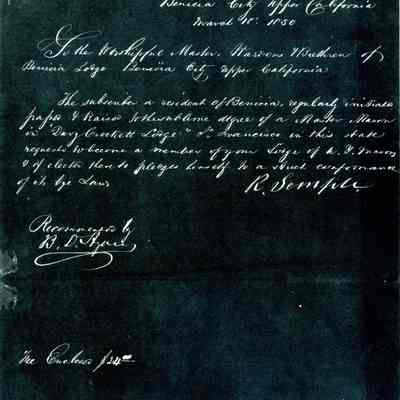 Benicia City Upper California
March 1st 1850
To the Worshipful Master. Wardens & Brethren of
Benicia Lodge Benicia City Upper California
The subscriber a resident of Benicia, regularly initiated
passed & Raised to the sublime degree of a Master Mason
in "Davy Crockett Lodge" Sn Francisco in this state
requests to become a member of your Lodge of A. F. Masons
& if elected there to pledges himself to a strict conformance
of its bye Laws R. Semple.
Recommended by
B. D.
Fee Enclosed $24